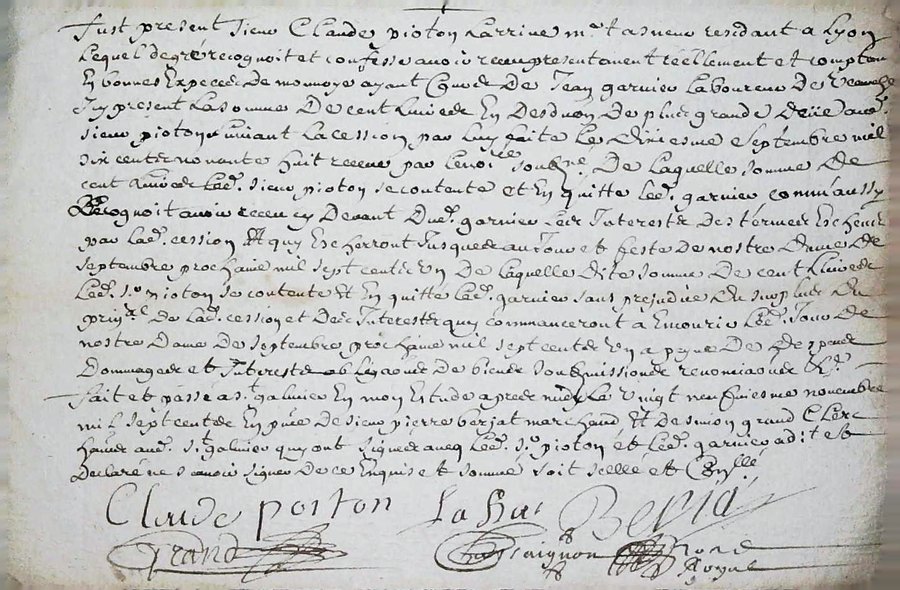 fust present sieur Claude pioton Larrine m.e tasneur residant a Lyon
Lequel de gré recognoit et confesse avoir receu presentement réellement et comptan
En bonnes Especes de monnoye ayant Cours De Jean garnier Laboureur De
Icy present La somme De cent Livres En Desduon De plus grande Deüe aud.
sieur pioton suivant La cession par Luy faite Le dixiesme septembre mil
six centz nonante huit receue par Le no.re soub.ne De Laquelle somme De
cent Livres Led. sieur pioton se contente et En quitte Led. garnier comme aussy
Recognoit avoir receu cy Devant Dud. garnier Les Interestz Des termes Escheus
par Lad. cession Et quy Escherront Jusques au Jour et feste De nostre Dame De
septembre prochain mil sept centz un De Laquelle dite somme De cent Livres
Led. s.r pioton se contente Et En quitte Led. garnier sans prejudice Du surplus Du
prin.al De Lad. cession et Des Interestz quy commanceront à Encourir Led. Jour De
nostre Dame De septembre prochain mil sept centz un a peyne De Despens
Dommages et Interestz obligaons De biens soubzmissions renonciaons &.
fait et passé a s.t galmier En mon Estude apres midy Le vingt neufviesme novembre
mil sept centz En p.nce De sieur pierre berjat marchand Et De simon grand Clerc
aud. s.t galmier quy ont signez avecq Led. s.r pioton et Led. garnier a dit et
Declaré ne scavoir signer De ce Enquis et sommé soit scelle et Con.llé
Claude pioton La Berja
Grand Ronz